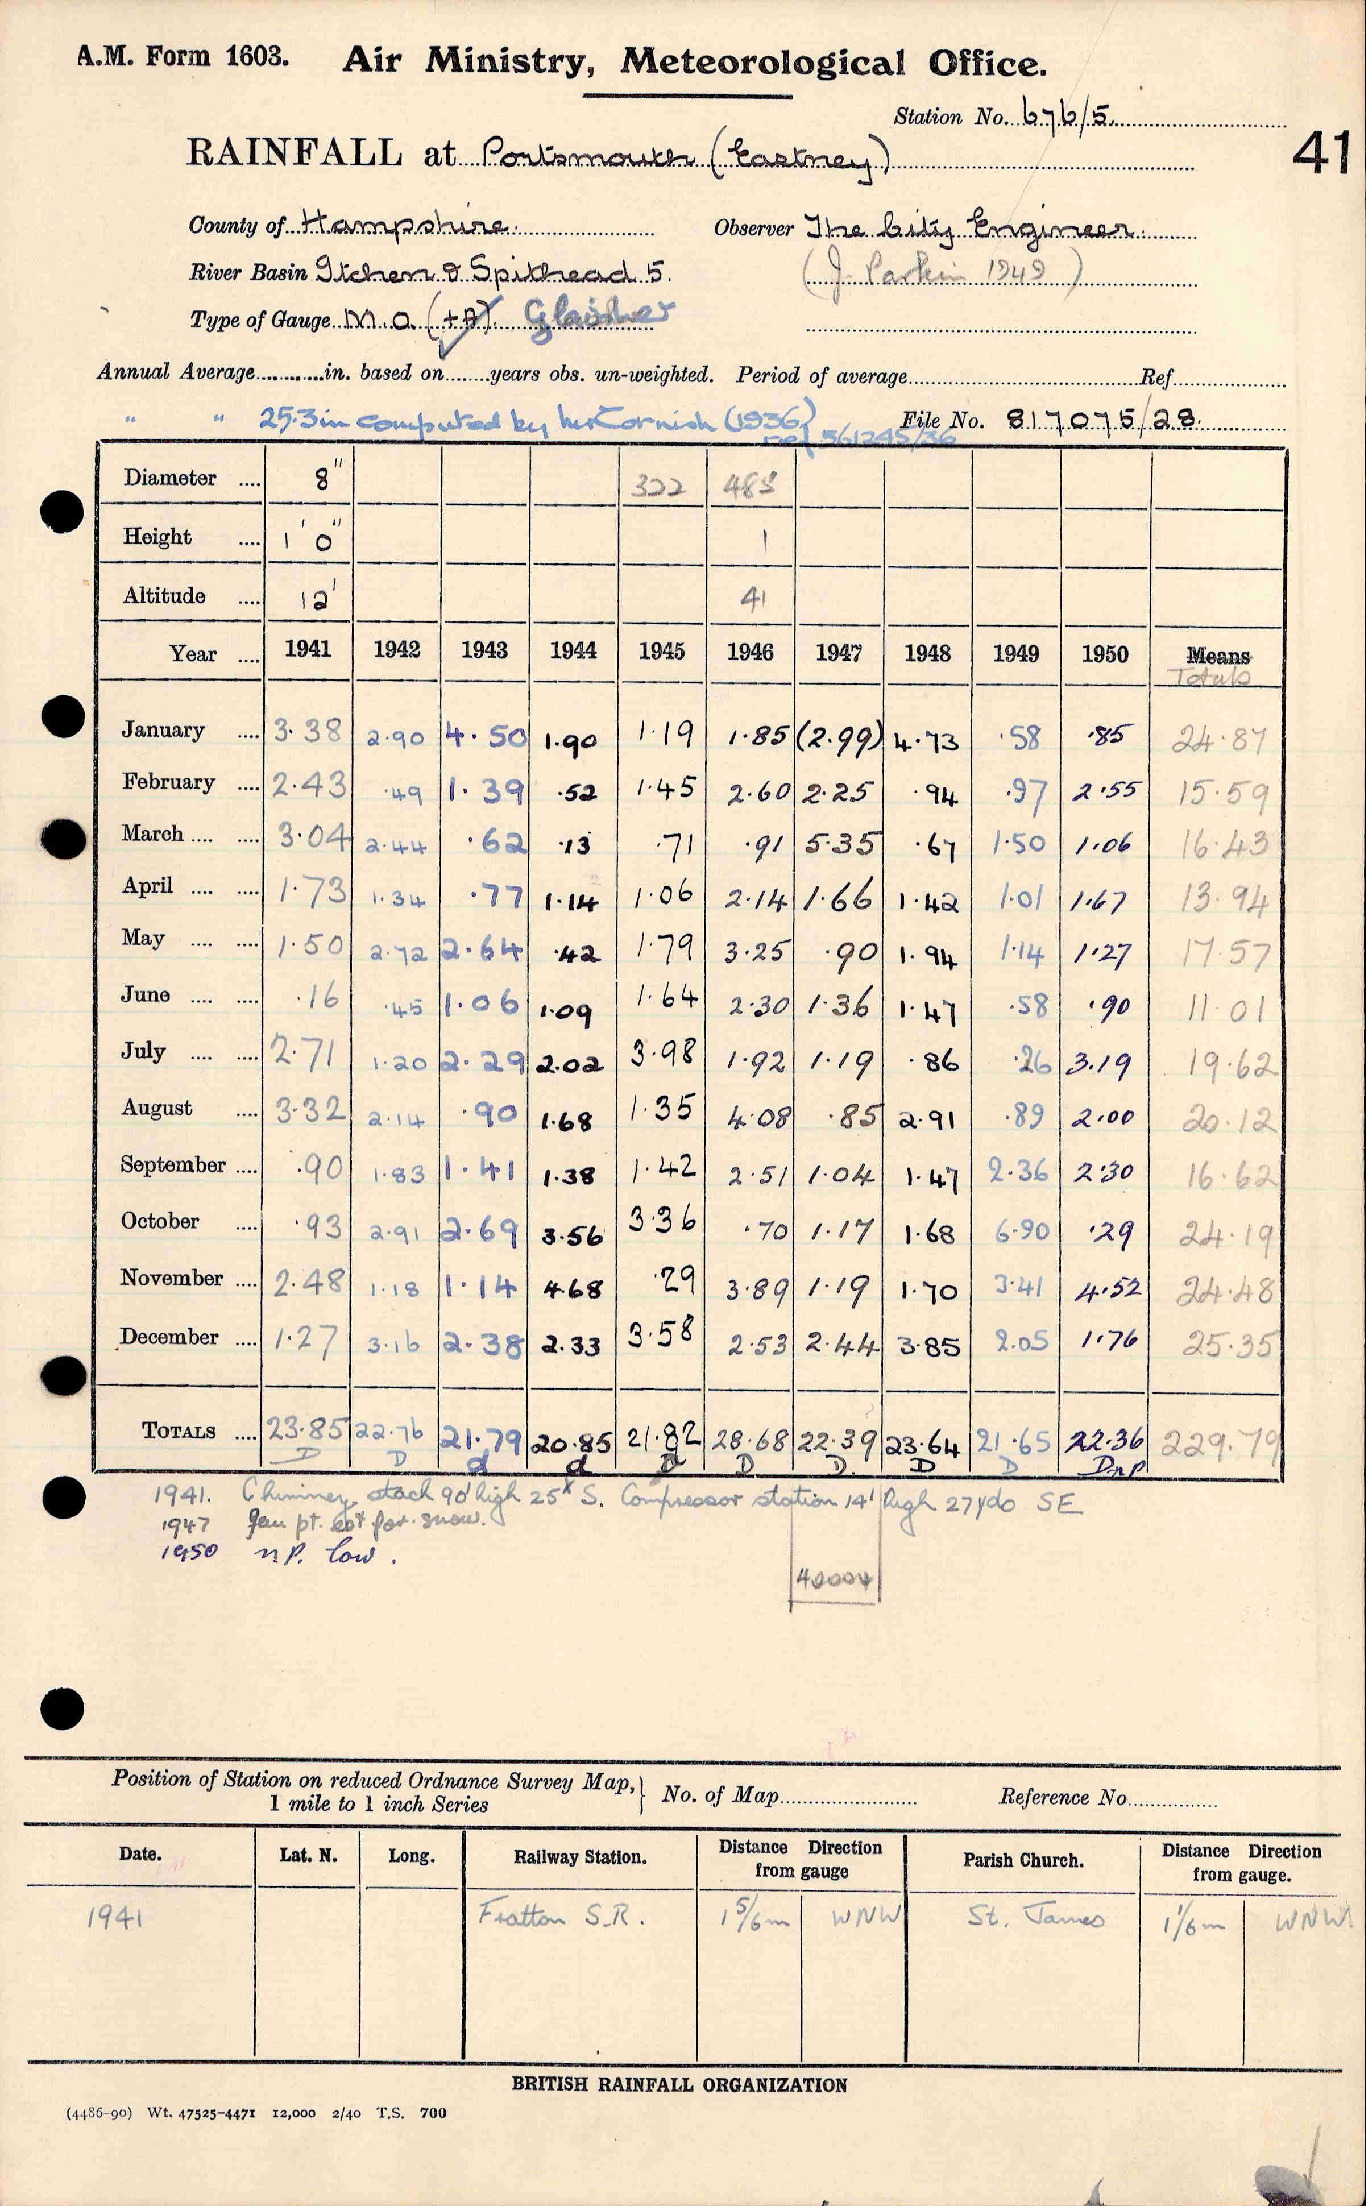 A.M. Form 1603. Air Ministry, Meteorological Office.
Station No. 676/5
41
RAINFALL at Portsmouth (Eastney)
County of Hampshire Observer The City Engineer
River Basin Itchen & Spithead 5. (J. Parkin 1949)
Type of Gauge M.O. (+A) Glaisher
Annual Average in. based on years obs. un-weighted. Period of average Ref
" " 25.3in computed by Mr Cornish (1936) File No. 817075/28
ref 561245/36
Diameter 8" 322 485
Height 1' 0" 1
Altitude 12' 41
Year 1941 1942 1943 1944 1945 1946 1947 1948 1949 1950 Means
Totals
January 3.38 2.90 4.50 1.90 1.19 1.85 (2.99) 4.73 .58 .85 24.87
February 2.43 .49 1.39 .52 1.45 2.60 2.25 .94 .97 2.55 15.59
March 3.04 2.44 .62 .13 .71 .91 5.35 .67 1.50 1.06 16.43
April 1.73 1.34 .77 1.14 1.06 2.14 1.66 1.42 1.01 1.67 13.94
May 1.50 2.72 2.64 .42 1.79 3.25 .90 1.94 1.14 1.27 17.57
June .16 .45 1.06 1.09 1.64 2.30 1.36 1.47 .58 .90 11.01
July 2.71 1.20 2.29 2.02 3.98 1.92 1.19 .86 .26 3.19 19.62
August 3.32 2.14 .90 1.68 1.35 4.08 .85 2.91 .89 2.00 20.12
September .90 1.83 1.41 1.38 1.42 2.51 1.04 1.47 2.36 2.30 16.62
October .93 2.91 2.69 3.56 3.36 .70 1.17 1.68 6.90 .29 24.19
November 2.48 1.18 1.14 4.68 .29 3.89 1.19 1.70 3.41 4.52 24.48
December 1.27 3.16 2.38 2.33 3.58 2.53 2.44 3.85 2.05 1.76 25.35
TOTALS 23.85 22.76 21.79 20.85 21.82 28.68 22.39 23.64 21.65 22.36 229.79
D D d d D D D D D DnP
1941. Chimney stack 90' high 25x S. Compressor station 14' high 27yds SE
1947 Jan pt. est for snow.
1950 n P. low.
Position of Station on reduced Ordnance Survey Map, No. of Map Reference No
1 mile to 1 inch Series
Date. Lat. N. Long. Railway Station. Distance Direction from gauge Parish Church. Distance Direction from gauge.
1941 Fratton S.R. 1 5/6m WNW St. James 1 1/6m WNW
BRITISH RAINFALL ORGANIZATION
(4486-90) Wt. 47525-4471 12,000 2/40 T.S. 700